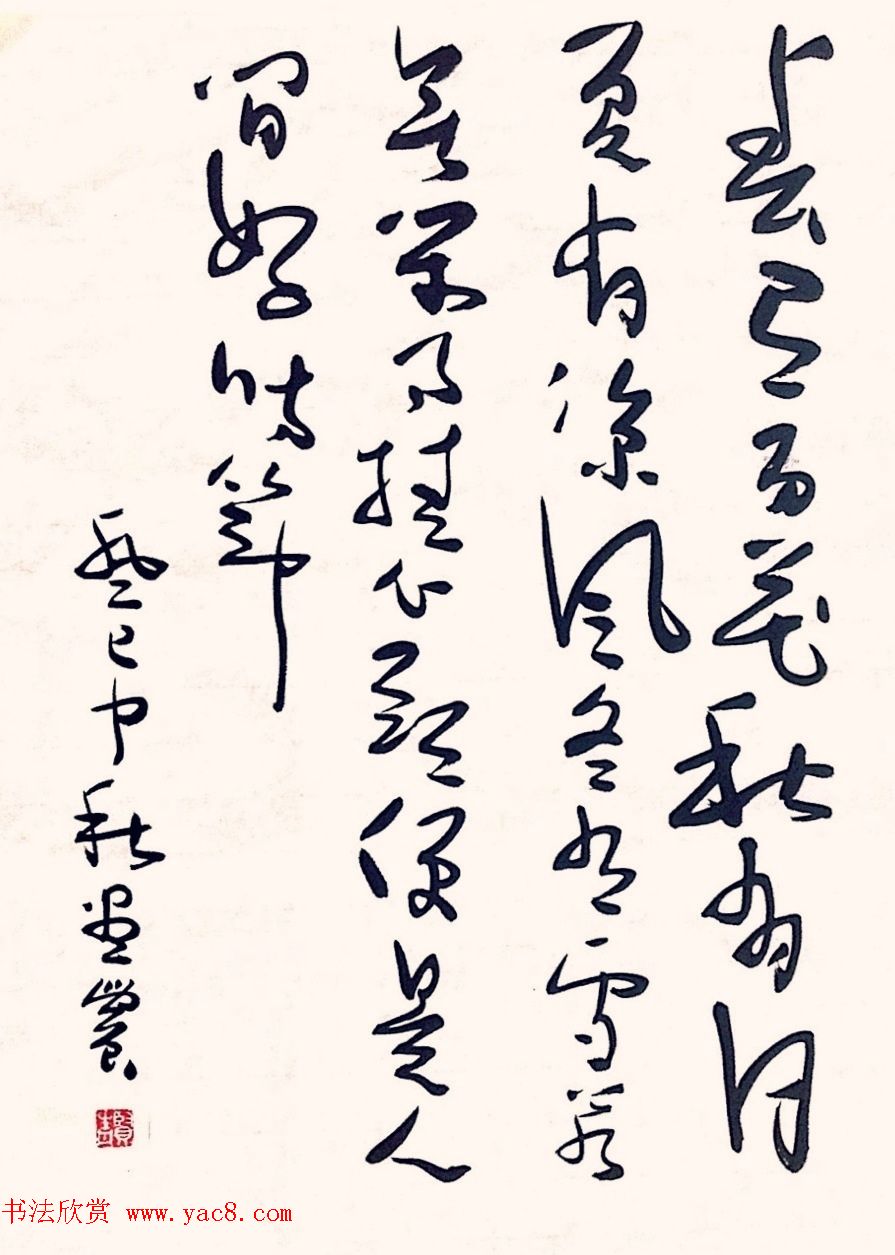 春有百花秋有月
夏有涼風冬有雪若
無閑事挂心頭便是人
間好時節
癸巳中秋
书法欣赏 www.yac8.com